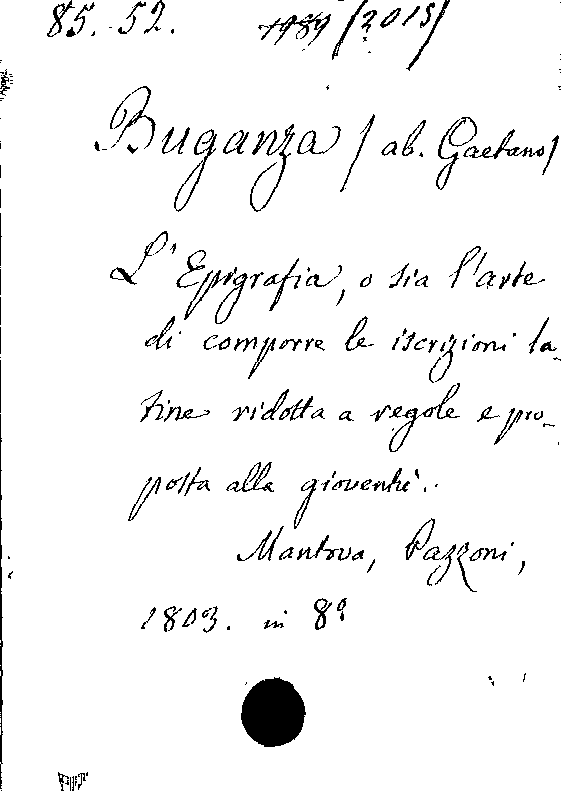 85. 52. 1989 (2015)
Buganza (ab. Gaetano)
L'Epigrafia, o sia l'arte
di comporre le iscrizioni la-
tine ridotta a regole e pro-
posta alla gioventù.
Mantova, Pazzoni,
1803. in 8°